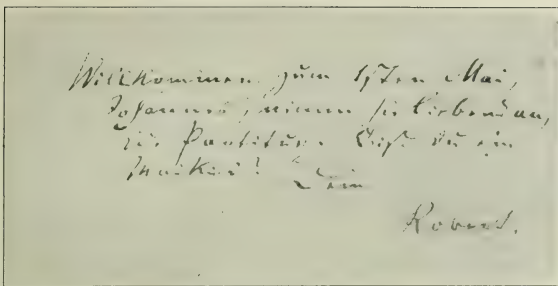 Willkommen zum Mai,
Johannes, nimm sie liebend an,
die Partitur. du ein
Dein
Robert.